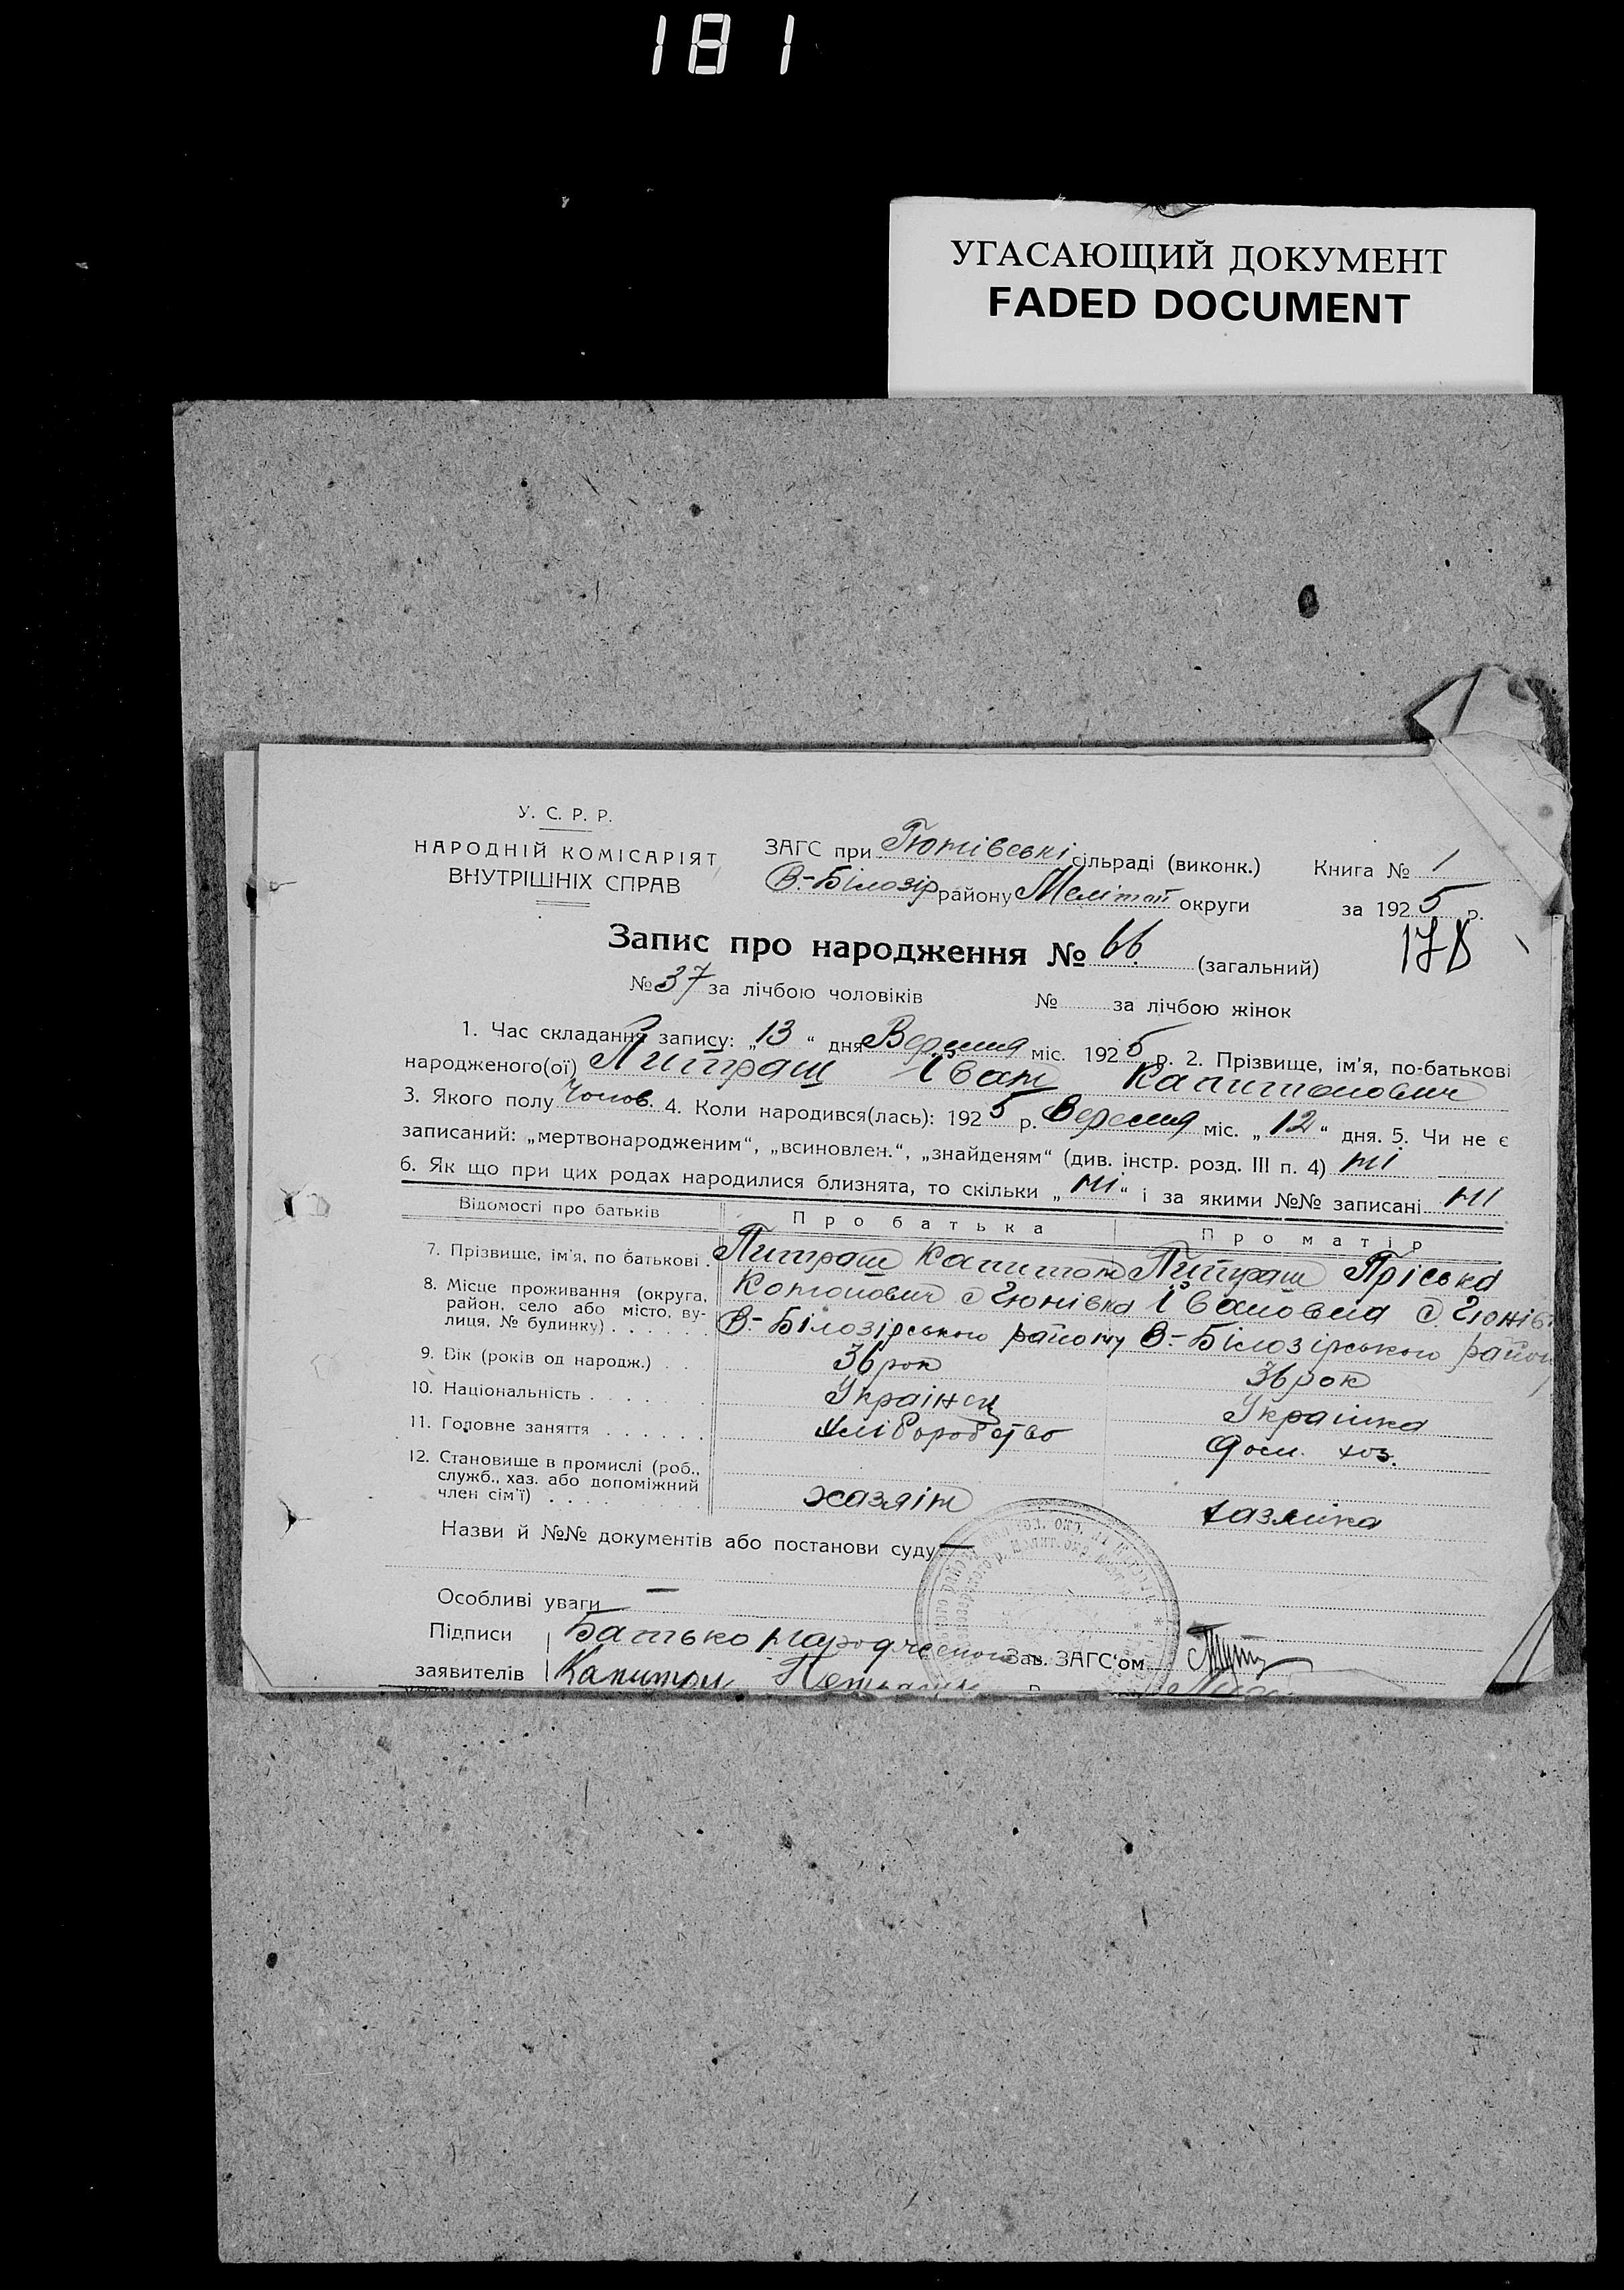 181
УГАСАЮЩИЙ ДОКУМЕНТ
FADED DOCUMENT
У. С. Р. Р.
НАРОДНІЙ КОМІСАРІЯТ
ВНУТРІШНІХ СПРАВ
ЗАГС при Гюнівські сільраді (виконк.)
В.-Білозір району Меліто округи
Книга № 1
за 1925 р.
178
Запис про народження № 66. (загальний)
№ 37 за лічбою чоловіків № за лічбою жінок
1. Час складання запису: „13“ дня Вересня міс. 1925 р. 2. Прізвище, ім'я, по-батькові
народженого(ої) Питраш Іван Капитонович
3. Якого полу Чолов. 4. Коли народився(лась): 1925 р. Вересня міс. „12“ дня. 5. Чи не є
записаний: „мертвонародженим“, „всиновлен.“, „знайденям“ (див. інстр. розд. III п. 4) ні
6. Як що при цих родах народилися близнята, то скільки „ні“ і за якими №№ записані ні
Відомості про батьків Про батька Про матір
7. Прізвище, ім'я, по батькові . Питраш Капитон Питраш Пріська
8. Місце проживання (округа, район, село або місто, вулиця, № будинку) . . . . . .
с Гюнівка Івановна с. Гюнів
В.-Білозірського району В.-Білозірського район
9. Вік (років од народж.) . . 36 рок 36 рок
10. Національність . . . . Українец Українка
11. Головне заняття . . . . . . хліборобство дом. хоз.
12. Становище в промислі (роб., служб., хаз. або допоміжний член сім'ї) . . . .
хазяїн хазяйка
Назви й №№ документів або постанови суду —
Особливі уваги —
Підписи Батько народженого Зав. ЗАГС'ом
заявителів Капитон